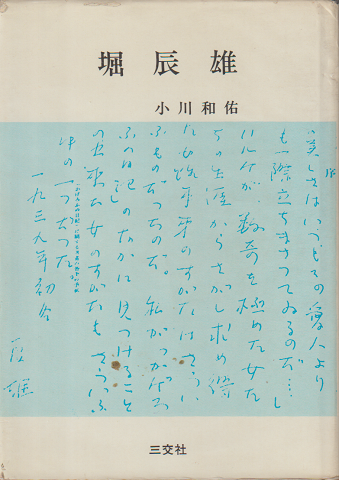 堀辰雄
小川和佑
しさはいつもその愛人より
も一際立ちまさつてゐるのだ…し
が、数奇を極めた女た
ちの生涯からさがし求め得
のすがたはさうい
ふものだつたのだ。私が「かげろ
ふの日記」のなかに見つけること
の出来た女のすがたもさういふ
中の一つだつた
一九三九年初冬
三交社